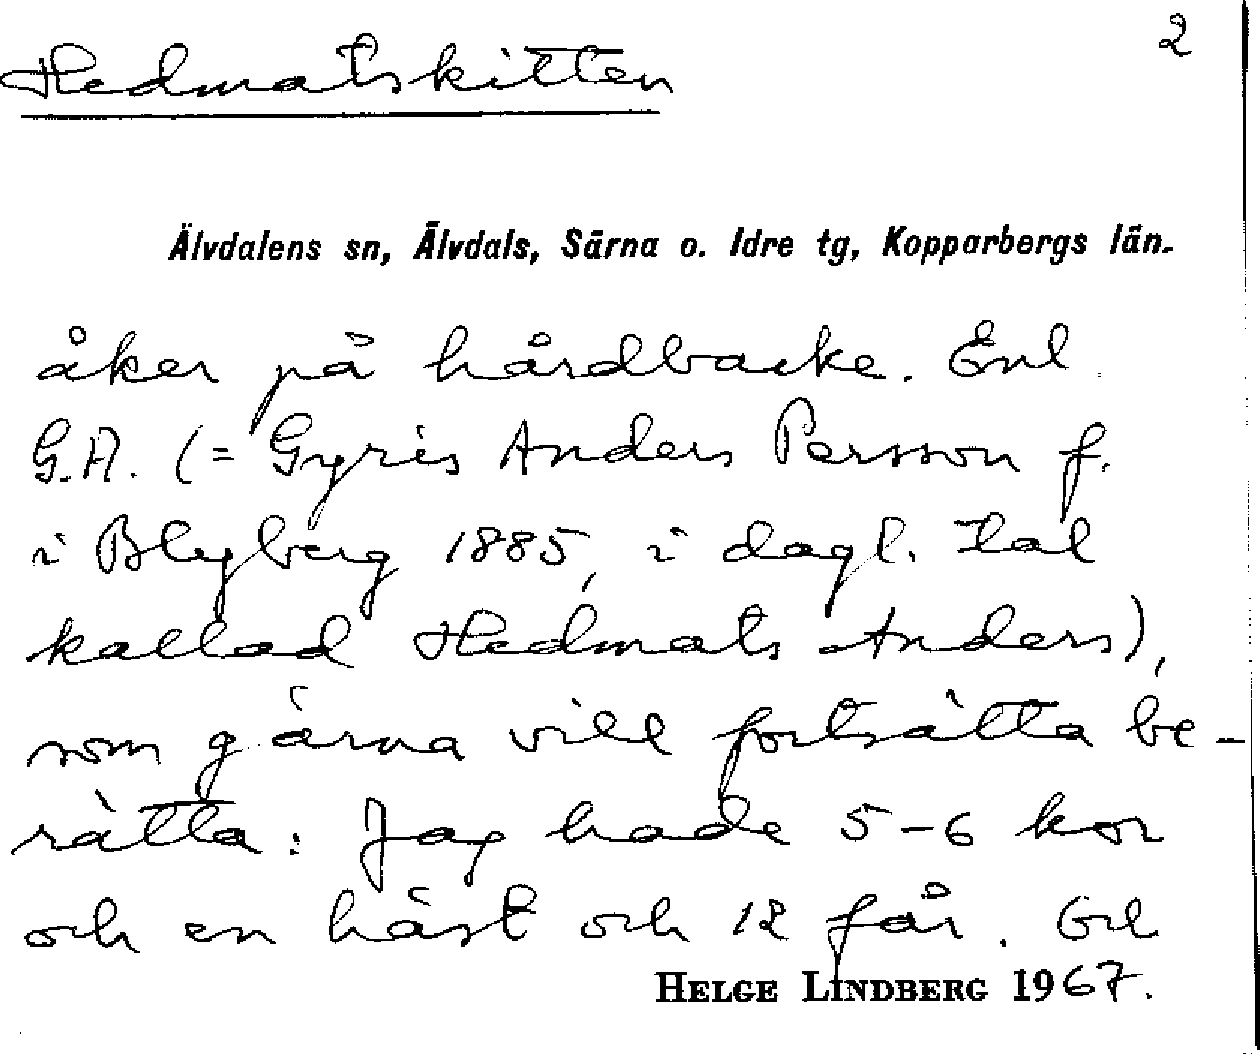 2
Hedmatskitten
Älvdalens sn, Älvdals, Särna o. Idre tg, Kopparbergs län.
åker på hårdbacke. Enl
G.A. (= Gyris Anders Persson f.
i Blyberg 1885, i dagl. tal
kallad Hedmats Anders),
som gärna vill fortsätta be-
rätta: Jag hade 5-6 kor
och en häst och 12 får.
HELGE LINDBERG 1967.